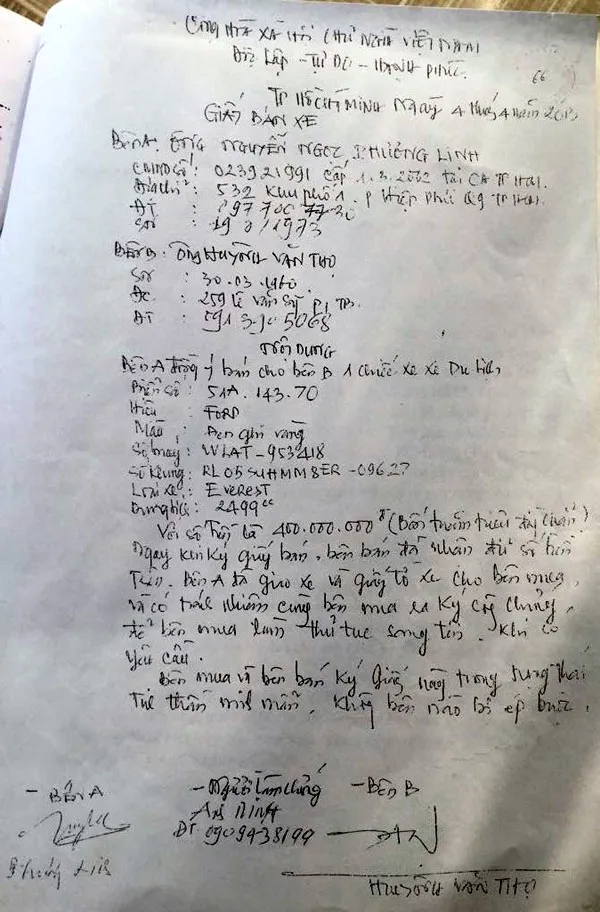 CỘNG HÒA XÃ HỘI CHỦ NGHĨA VIỆT NAM
Độc Lập - Tự Do - Hạnh Phúc
66
TP HỒ CHÍ MINH Ngày 4 tháng 4 năm
GIẤY BÁN XE
BÊN A: ÔNG NGUYỄN NGỌC PHƯƠNG LINH
CMND số: 023921991 cấp 1.3.2002 tại CA TP HCM.
Địa chỉ: 532 Khu phố 1. P Hiệp Phú Q9 TP HCM.
ĐT :
SN : 1973
BÊN B: Ông HUỲNH VĂN THỌ
SN : 30.03.1960
ĐC : 259 Lê Văn Sỹ P1 TB.
ĐT : 5068
NỘI DUNG
Bên A đồng ý bán cho bên B 1 chiếc xe xe Du lịch
Biển số : 51A.143.70
Hiệu : FORD
Màu : Đen ghi vàng
Số máy : WLAT-953418
Số khung: RL05SUHMM8ER-09627
Loại xe : EVEREST
Dung tích : 2499cc
Với số tiền là 400.000.000đ (Bốn trăm triệu đồng chẵn)
Ngay khi ký giấy bán, bên bán đã nhận đủ số tiền
trên. Bên A đã giao xe và giấy tờ xe cho bên mua,
và có trách nhiệm cùng bên mua ra ký công chứng,
để bên mua làm thủ tục sang tên. Khi có
yêu cầu.
Bên mua và bên bán ký giấy này trong trạng thái
tinh thần minh mẫn, không bên nào bị ép buộc.
- BÊN A - Người làm chứng - BÊN B
ĐT 0909438199
Phương Linh
HUỲNH VĂN THỌ